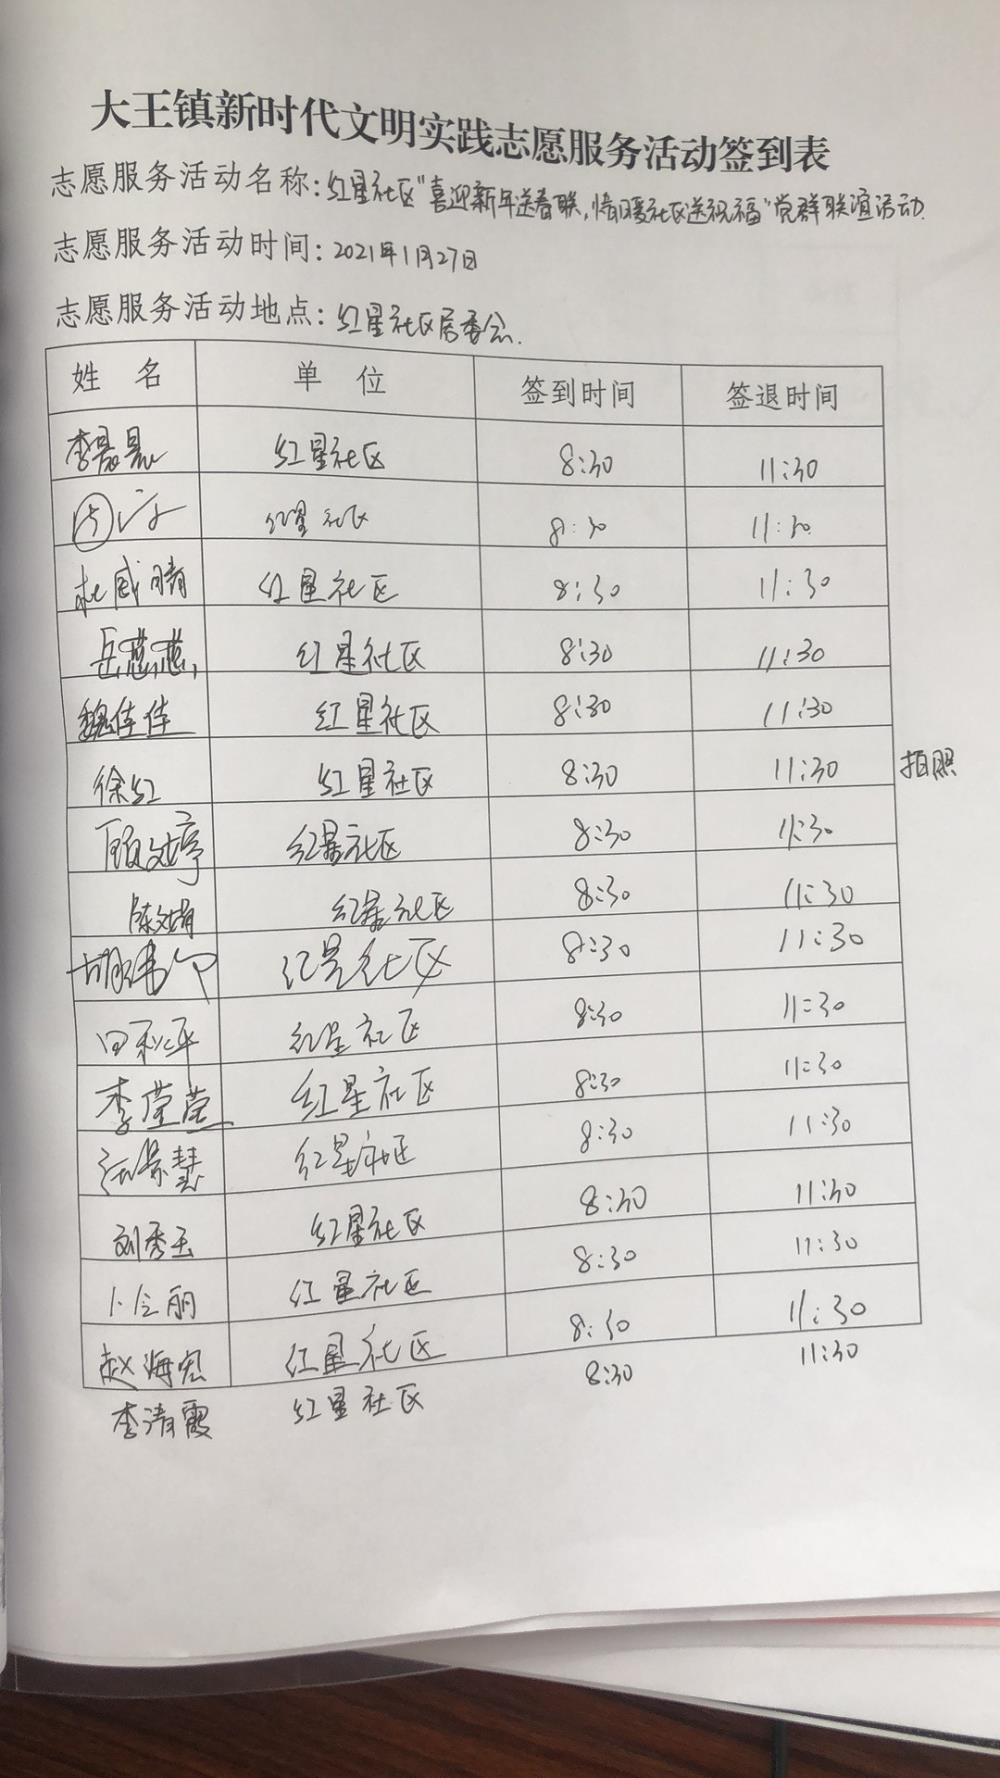 大王镇新时代文明实践志愿服务活动签到表
志愿服务活动名称:红星社区"喜迎新年送春联,情暖社区送祝福"党群联谊活动.
志愿服务活动时间:2021年1月27日
志愿服务活动地点:红星社区居委会.
姓 名 单 位 签到时间 签退时间
李晨晨 红星社区 8:30 11:30
红星社区 8:30 11:30
杜威晴 红星社区 8:30 11:30
岳慧慧 红星社区 8:30 11:30
魏佳佳 红星社区 8:30 11:30
徐红 红星社区 8:30 11:30 拍照
顾文婷 红星社区 8:30 11:30
陈文娟 红星社区 8:30 11:30
红星社区 8:30 11:30
田利平 红星社区 8:30 11:30
李莹莹 红星社区 8:30 11:30
红星社区 8:30 11:30
刘秀玉 红星社区 8:30 11:30
卜令丽 红星社区 8:30 11:30
赵海宏 红星社区 8:30 11:30
李清霞 红星社区 8:30 11:30